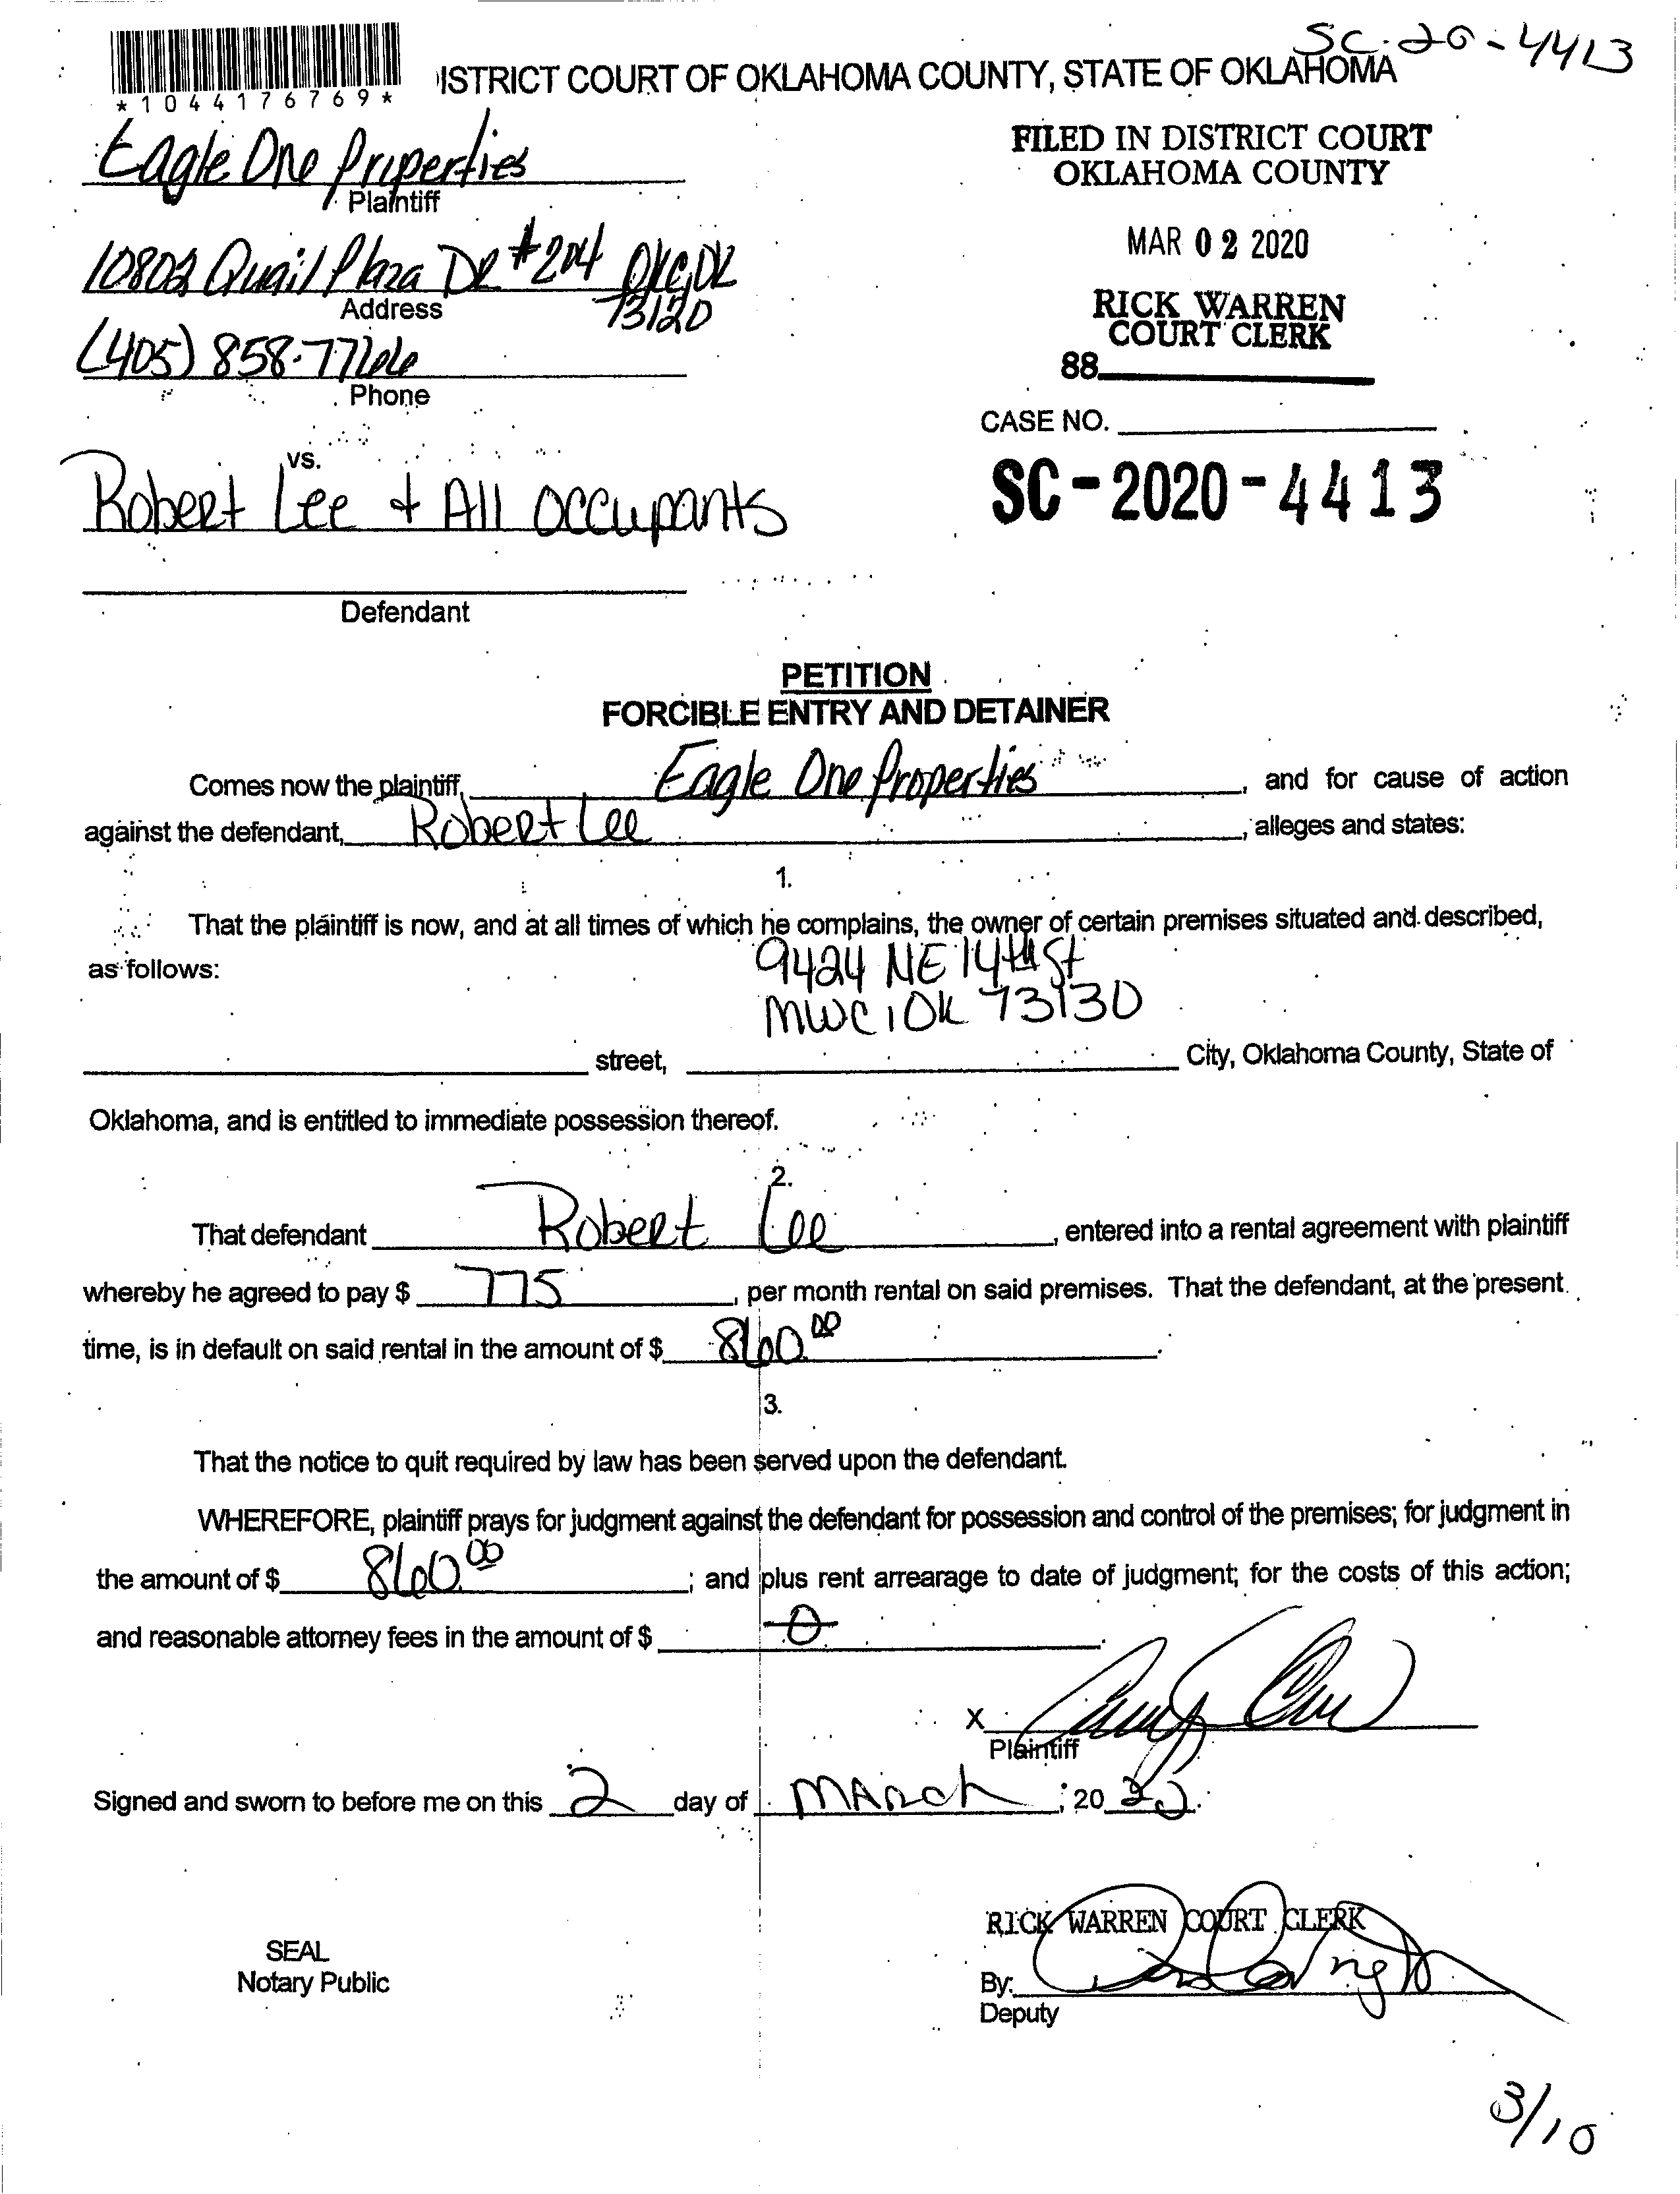 SC-20-4413
*1044176769*
ISTRICT COURT OF OKLAHOMA COUNTY, STATE OF OKLAHOMA
Eagle One Properties
Plaintiff
FILED IN DISTRICT COURT
OKLAHOMA COUNTY
MAR 02 2020
RICK WARREN
COURT CLERK
88
10802 Quail Plaza DR #204 OKC, OK
73120
Address
(405) 858-7766
Phone
CASE NO.
SC-2020-4413
vs.
Robert Lee + All occupants
Defendant
PETITION
FORCIBLE ENTRY AND DETAINER
Comes now the plaintiff, Eagle One Properties, and for cause of action
against the defendant, Robert Lee, alleges and states:
1.
That the plaintiff is now, and at all times of which he complains, the owner of certain premises situated and described,
as follows: 9424 NE 14th St
MWC, OK 73130
street, City, Oklahoma County, State of
Oklahoma, and is entitled to immediate possession thereof.
2.
That defendant Robert Lee, entered into a rental agreement with plaintiff
whereby he agreed to pay $ 775, per month rental on said premises. That the defendant, at the present
time, is in default on said rental in the amount of $ 860.00.
3.
That the notice to quit required by law has been served upon the defendant.
WHEREFORE, plaintiff prays for judgment against the defendant for possession and control of the premises; for judgment in
the amount of $ 860.00; and plus rent arrearage to date of judgment; for the costs of this action;
and reasonable attorney fees in the amount of $ 0.
X
Plaintiff
Signed and sworn to before me on this 2 day of March, 20 20.
RICK WARREN COURT CLERK
SEAL
Notary Public
By:
Deputy
3/10